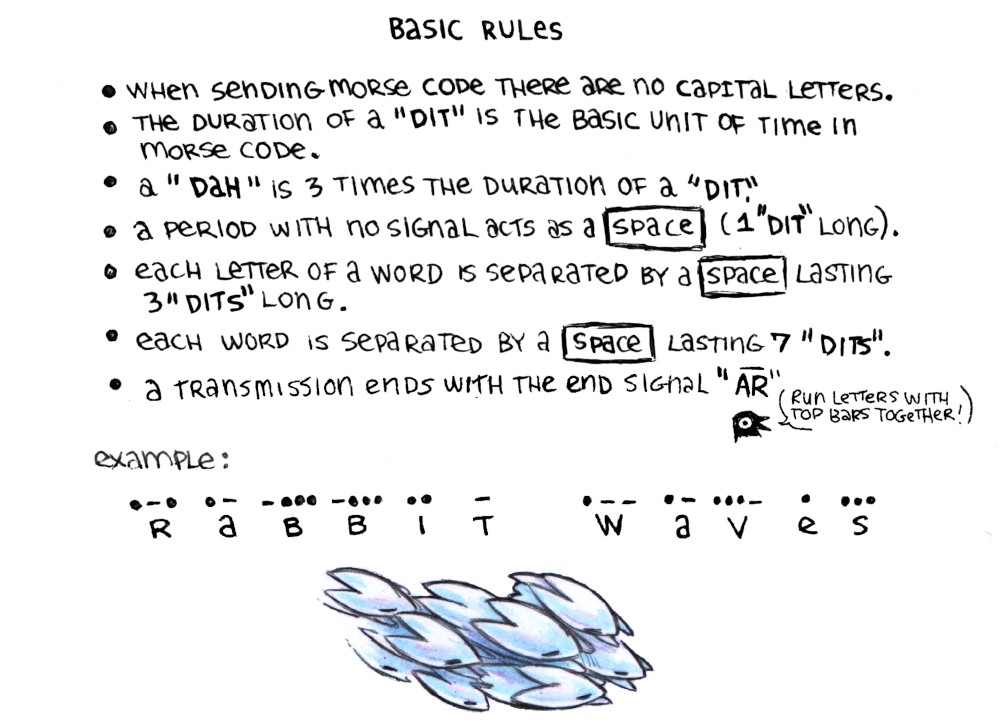 BaSIC RULeS
• WHen SenDING MORSE CODE THERE aRE no CaPITaL LETTERS.
• THE DURaTION OF a "DIT" IS THE BaSIC UnIT OF TIme In
MORSE CODE.
• a "DaH" IS 3 TImes THE DURaTIOn OF a "DIT."
• a PERIOD WITH no SIGnaL acTS as a SPace (1 "DIT" LONG).
• eacH LeTTER OF a WORD IS SePaRaTED BY a SPace LaSTING
3 "DITS" LONG.
• eacH WORD IS SePaRaTED BY a SPace LaSTING 7 "DITS".
• a TRansmISSION enDS WITH THE enD SIGnaL "A̅R̅"
(RUn LeTTeRS WITH
TOP BaRS TOGeTHeR!)
example:
•-• •- -••• -••• •• - •-- •- •••- • •••
R a B B I T W a V e S